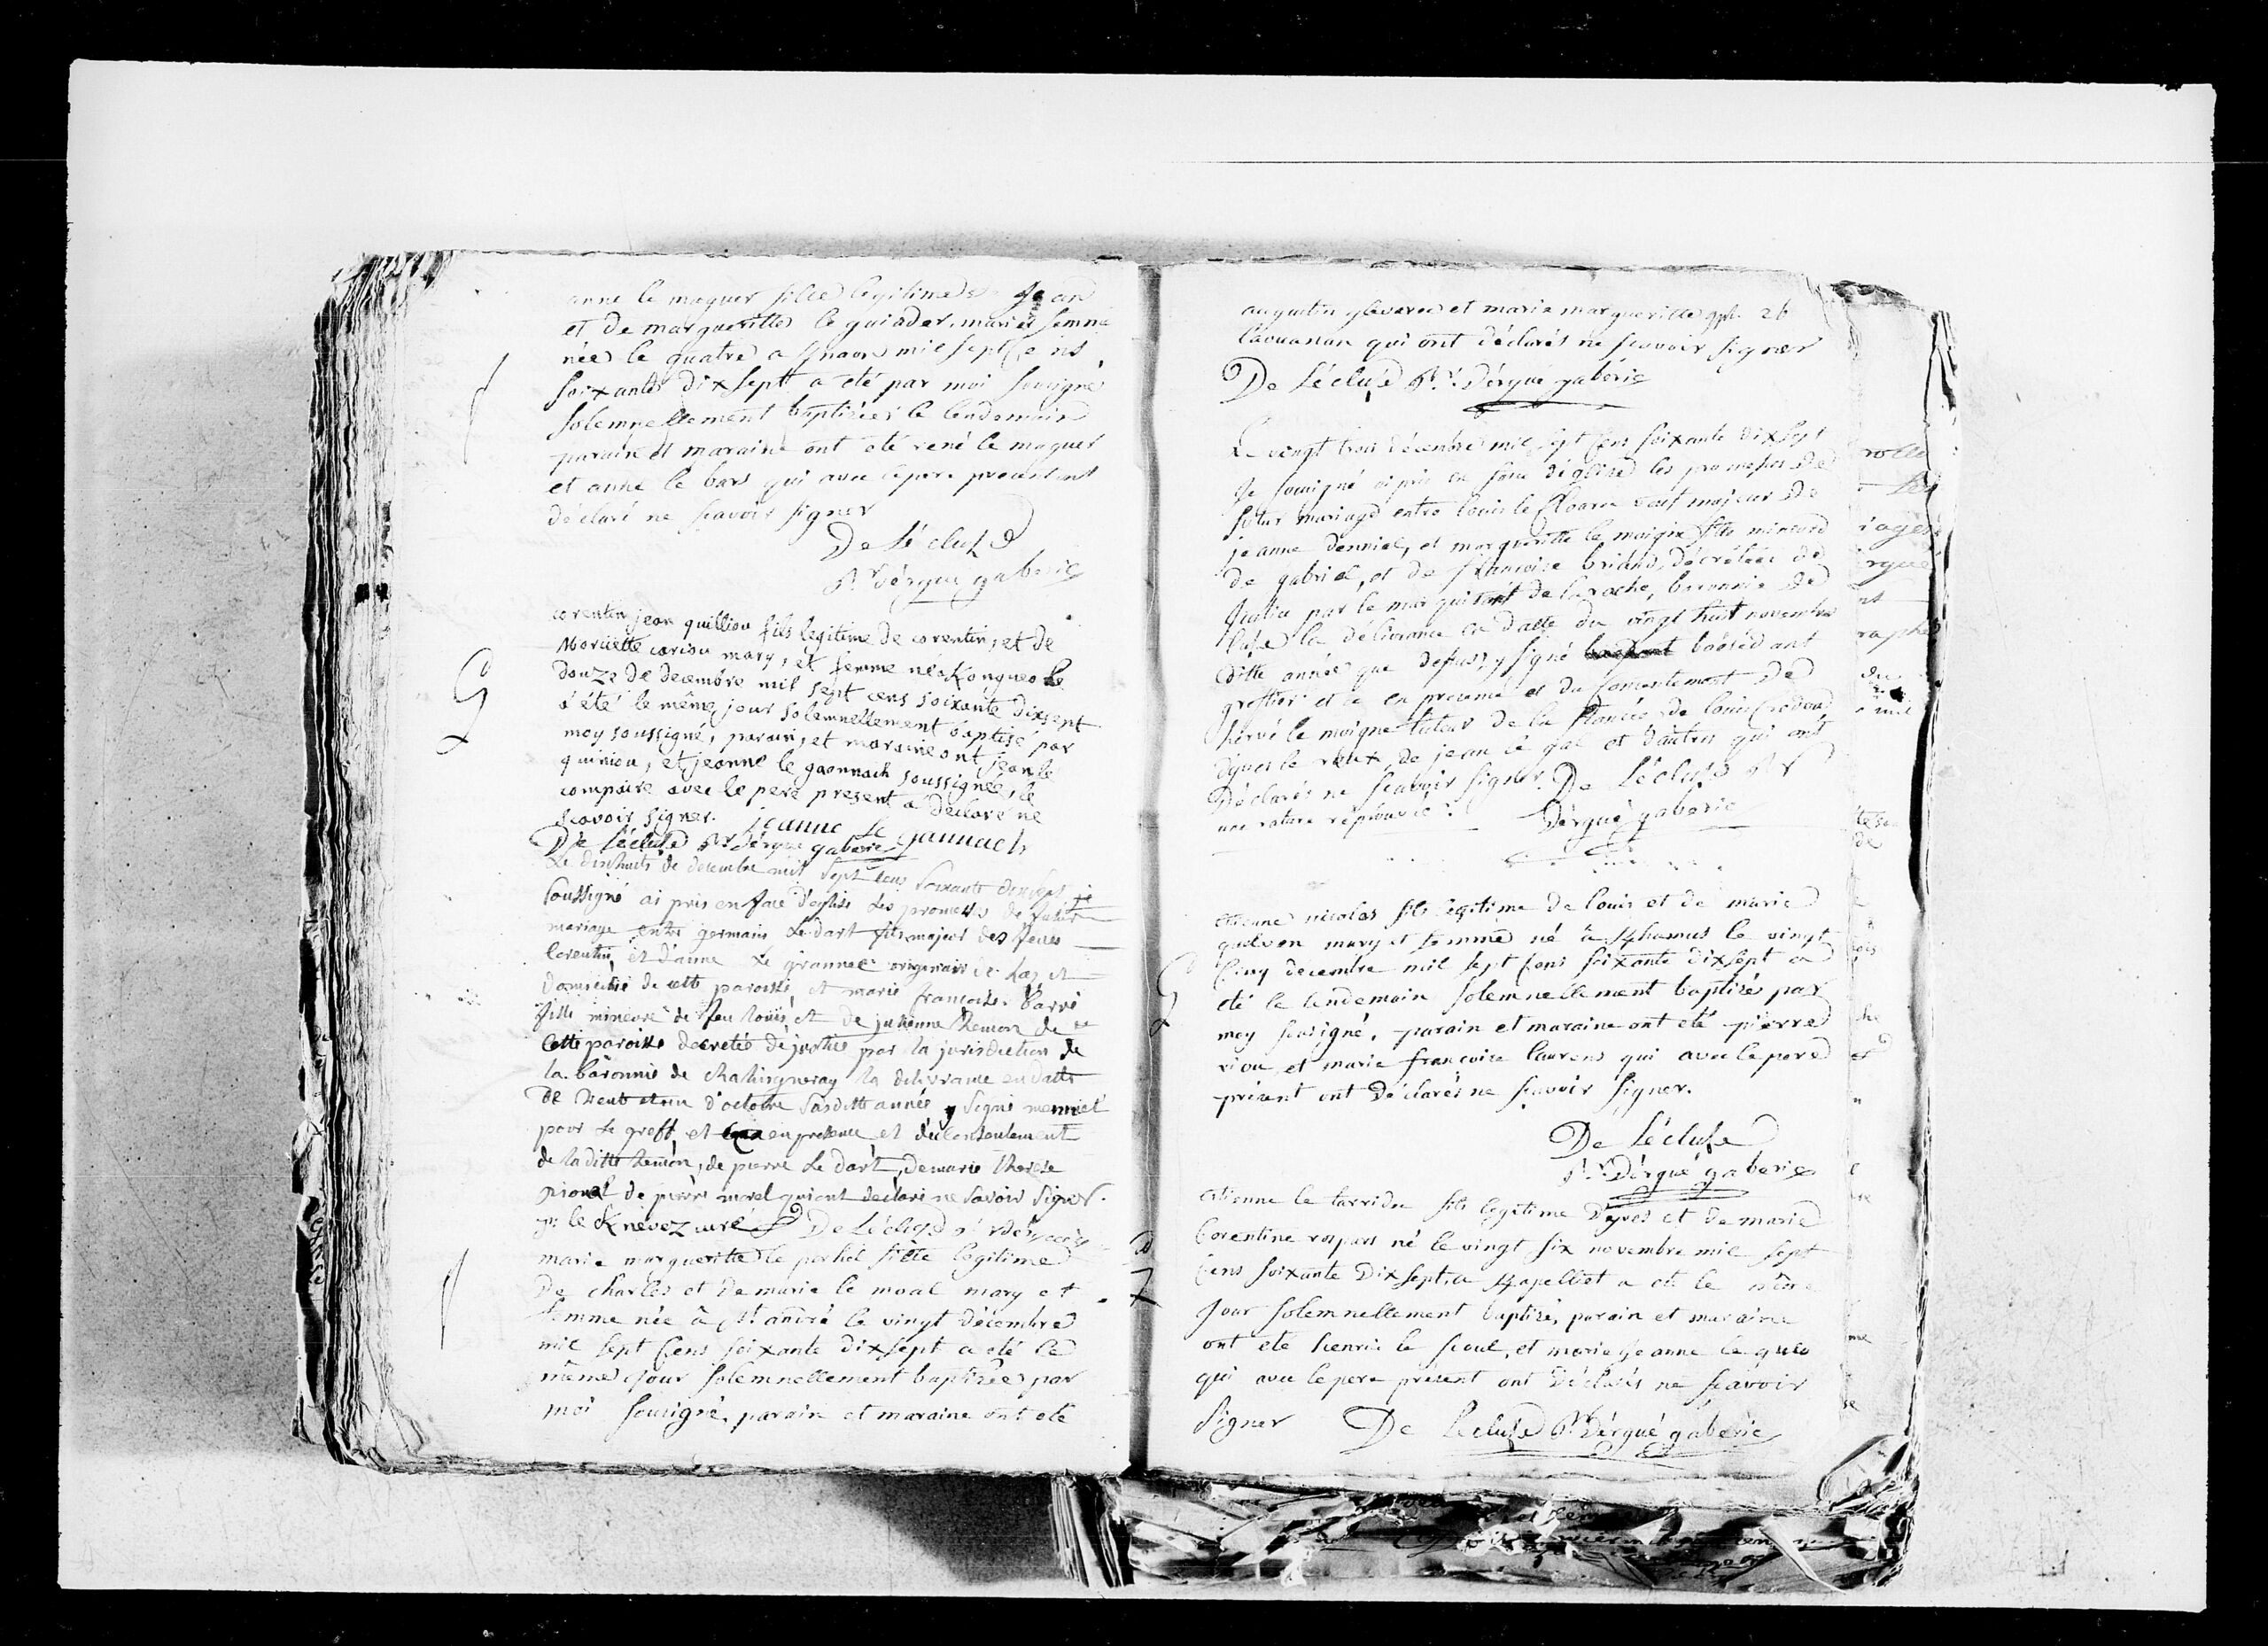 anne le maguer fille legitime de Jean
et de margueritte le guiader, mariés femme
née le quatre a mil sept cens
soixante dix sept a été par moi sousigné
solempnellement baptisée le lendemain
parain et maraine ont été rené le maguer
et anne le bars qui avec le pere present ont
déclaré ne scavoir signer
De Lécluse
Rr. d'érgué gaberic
corentin jean quilliou fils legitime de corentin, et de
Noruette cariou mary, et femme né a Kongueo le
douze de decembre mil sept cens soixante dixsept
a été le même jour solemnellement baptisé par
moy soussigné, parain, et maraine ont jean le
quiniou, et jeanne le gaonnach soussignée, le
compaire avec le pere present a déclaré ne
scavoir signer. jeanne le gannach
De Lécluse Rr. dérgué gaberic
Le dixhuit de decembre mil sept cens soixante dix sept je
soussigné ai pris en face d'eglise les promesses de futur
mariage entre germain Le dart fils majeur des feus
Corentin, et d'anne Le grannec originaire de et
domicilié de cette paroisse et marie françoise Barré
fille mineure de feu louis, et de julienne hemon de
cette paroisse decretée de justice par la jurisdiction de
la baronnie de la délivrance en datte
de trente et un d'octobre susditte année y signé menniel
pour le greff, et en presence et du consentement
de laditte hemon, de pierre Le dart, de marie therese
de pierre morel qui ont declaré ne savoir signer.
le Knevez curé De Lécluse
marie margueritte le porhel fille legitime
De charles et de marie le moal mary et
femme née à St andré le vingt décembre
mil sept cens soixante dix sept a été le
même jour solemnellement baptisée par
moi sousigné, parain et maraine ont été
augustin et marie margueritte 26
qui ont déclarés ne scavoir signer
De Lécluse Rr. d'érgué gaberic
Le vingt trois décembre mil sept cens soixante dix sept
Je sousigné ai pris en face d'églize les promesses de
futur mariage entre louis le Cloarec veuf majeur de
jeanne denniel, et margueritte le moigne fille mineure
de gabriel, et de françoise briand, décrétée de
Justice par le marquisat de la roche, baronnie de
la délivrance en datte du vingt huit novembre
ditte année que dessus, y signé baosédant
greffier et ce en presence et du consentement de
hervé le moigne tuteur de la fiancée de louis credou
d'yves le roux, de jean le gal et d'autres qui ont
Déclarés ne scavoir signer. De Lécluse Rr
une rature réprouvée : Dérgué gaberic
etienne nicolas fils legitime de louis et de marie
quelven mary et femme né à le vingt
cinq decembre mil sept cens soixante dix sept a
été le lendemain solemnellement baptisé par
moy sousigné, parain et maraine ont été pierre
riou, et marie françoise laurens qui avec le pere
présent ont Déclarés ne scavoir signer.
De Lécluse
Rr. Dérgué gaberic
etienne le tarridu fils legitime d'yves et de marie
Corentine rospars né le vingt six novembre mil sept
cens soixante Dix sept, a a été le même
jour solemnellement baptisé, parain et maraine
ont été henri le scoul, et marie jeanne le
qui avec le pere present ont déclarés ne scavoir
signer De Lécluse Rr. Dérgué gaberic